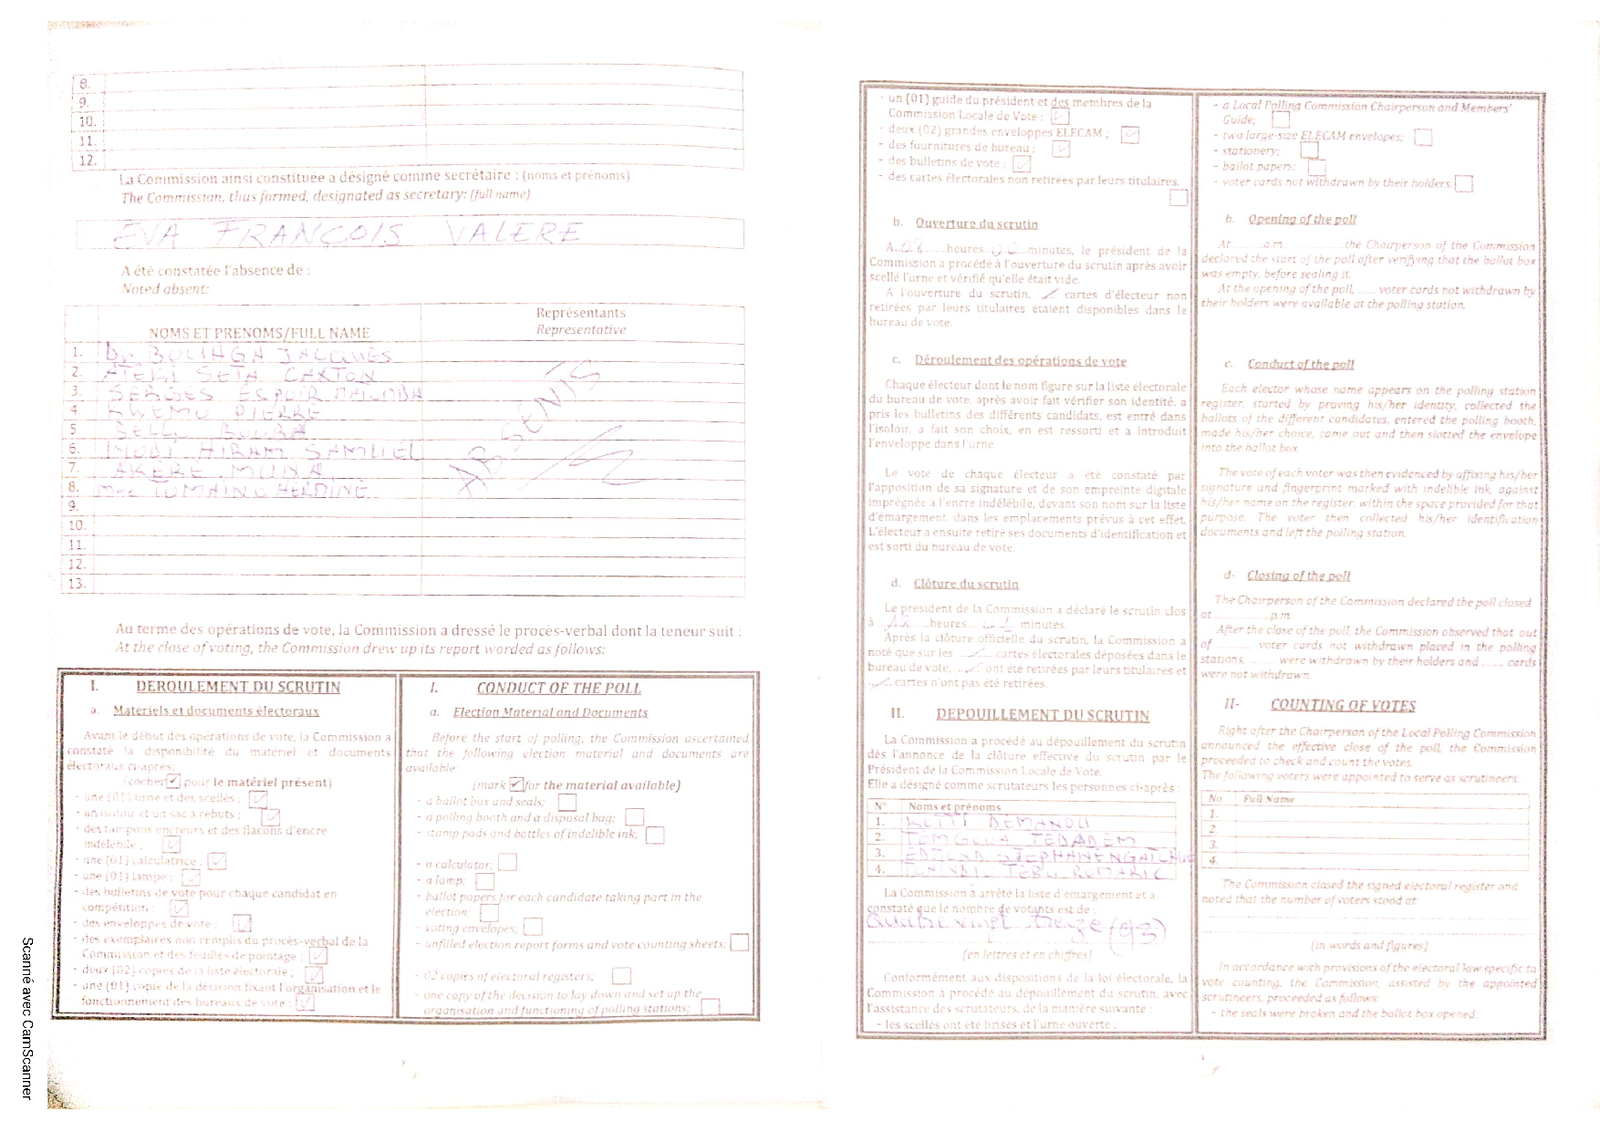 8.
9.
10.
11.
12.
La Commission ainsi constituée a désigné comme secrétaire : (noms et prénoms)
The Commission, thus formed, designated as secretary: (full name)
EVA FRANÇOIS VALERE
A été constatée l'absence de :
Noted absent:
NOMS ET PRENOMS/FULL NAME
Représentants
Representative
1. Dr BOUNGA JACQUES
2. ATEKI SETA CAXTON
3. SERGES ESPOIR MATOMBA
4 KWEMO PIERRE
5 BELLO BOUBA
6. HIRAM SAMUEL
7. AKERE MUNA
8. Mme TOMAINO HELDINE
9.
10.
11.
12.
13.
ABSENTS
Au terme des opérations de vote, la Commission a dressé le procès-verbal dont la teneur suit :
At the close of voting, the Commission drew up its report worded as follows:
I. DEROULEMENT DU SCRUTIN
a. Matériels et documents électoraux
Avant le début des opérations de vote, la Commission a
constaté la disponibilité du matériel et documents
électoraux ci-après.
(cocher ✓ pour le matériel présent)
- une (01) urne et des scellés ; ✓
- un isoloir et un sac à rebuts ; ✓
- des tampons encreurs et des flacons d'encre
indélébile ; ✓
- une (01) calculatrice ; ✓
- une (01) lampe ; ✓
- des bulletins de vote pour chaque candidat en
compétition ; ✓
- des enveloppes de vote ; ✓
- des exemplaires non remplis du procès-verbal de la
Commission et des feuilles de pointage ; ✓
- deux (02) copies de la liste électorale ; ✓
- une (01) copie de la décision fixant l'organisation et le
fonctionnement des bureaux de vote ; ✓
I. CONDUCT OF THE POLL
a. Election Material and Documents
Before the start of polling, the Commission ascertained
that the following election material and documents are
available:
(mark ✓ for the material available)
- a ballot box and seals;
- a polling booth and a disposal bag;
- stamp pads and bottles of indelible ink;
- a calculator;
- a lamp;
- ballot papers for each candidate taking part in the
election;
- voting envelopes;
- unfilled election report forms and vote counting sheets;
- 02 copies of electoral registers;
- one copy of the decision to lay down and set up the
organisation and functioning of polling stations;
- un (01) guide du président et des membres de la
Commission Locale de Vote ; ✓
- deux (02) grandes enveloppes ELECAM ; ✓
- des fournitures de bureau ; ✓
- des bulletins de vote ; ✓
- des cartes électorales non retirées par leurs titulaires.
b. Ouverture du scrutin
A 08 heures 00 minutes, le président de la
Commission a procédé à l'ouverture du scrutin après avoir
scellé l'urne et vérifié qu'elle était vide.
A l'ouverture du scrutin, / cartes d'électeur non
retirées par leurs titulaires étaient disponibles dans le
bureau de vote.
c. Déroulement des opérations de vote
Chaque électeur dont le nom figure sur la liste électorale
du bureau de vote, après avoir fait vérifier son identité, a
pris les bulletins des différents candidats, est entré dans
l'isoloir, a fait son choix, en est ressorti et a introduit
l'enveloppe dans l'urne.
Le vote de chaque électeur a été constaté par
l'apposition de sa signature et de son empreinte digitale
imprégnée à l'encre indélébile, devant son nom sur la liste
d'émargement, dans les emplacements prévus à cet effet.
L'électeur a ensuite retiré ses documents d'identification et
est sorti du bureau de vote.
d. Clôture du scrutin
Le président de la Commission a déclaré le scrutin clos
à heures minutes.
Après la clôture officielle du scrutin, la Commission a
noté que sur les / cartes électorales déposées dans le
bureau de vote, / ont été retirées par leurs titulaires et
/ cartes n'ont pas été retirées.
II. DEPOUILLEMENT DU SCRUTIN
La Commission a procédé au dépouillement du scrutin
dès l'annonce de la clôture effective du scrutin par le
Président de la Commission Locale de Vote.
Elle a désigné comme scrutateurs les personnes ci-après :
N° Noms et prénoms
1. KOTTI DEMANOU
2. TEMGOUA TEDADEM
3. STEPHANE
4. ROMARIC
La Commission a arrêté la liste d'émargement et a
constaté que le nombre de votants est de :
Quatre vingt treize (93)
(en lettres et en chiffres)
Conformément aux dispositions de la loi électorale, la
Commission a procédé au dépouillement du scrutin, avec
l'assistance des scrutateurs, de la manière suivante :
- les scellés ont été brisés et l'urne ouverte ;
- a Local Polling Commission Chairperson and Members'
Guide;
- two large-size ELECAM envelopes;
- stationery;
- ballot papers;
- voter cards not withdrawn by their holders
b. Opening of the poll
At ........ a.m. ........ the Chairperson of the Commission
declared the start of the poll after verifying that the ballot box
was empty, before sealing it.
At the opening of the poll, ...... voter cards not withdrawn by
their holders were available at the polling station.
c. Conduct of the poll
Each elector whose name appears on the polling station
register, started by proving his/her identity, collected the
ballots of the different candidates, entered the polling booth,
made his/her choice, came out and then slotted the envelope
into the ballot box.
The vote of each voter was then evidenced by affixing his/her
signature and fingerprint marked with indelible ink, against
his/her name on the register, within the space provided for that
purpose. The voter then collected his/her identification
documents and left the polling station.
d- Closing of the poll
The Chairperson of the Commission declared the poll closed
at ............ p.m.
After the close of the poll, the Commission observed that out
of ........ voter cards not withdrawn placed in the polling
stations, ...... were withdrawn by their holders and ...... cards
were not withdrawn.
II- COUNTING OF VOTES
Right after the Chairperson of the Local Polling Commission
announced the effective close of the poll, the Commission
proceeded to check and count the votes.
The following voters were appointed to serve as scrutineers:
No Full Name
1.
2.
3.
4.
The Commission closed the signed electoral register and
noted that the number of voters stood at:
(in words and figures)
In accordance with provisions of the electoral law specific to
vote counting, the Commission, assisted by the appointed
scrutineers, proceeded as follows:
- the seals were broken and the ballot box opened;
Scanné avec CamScanner